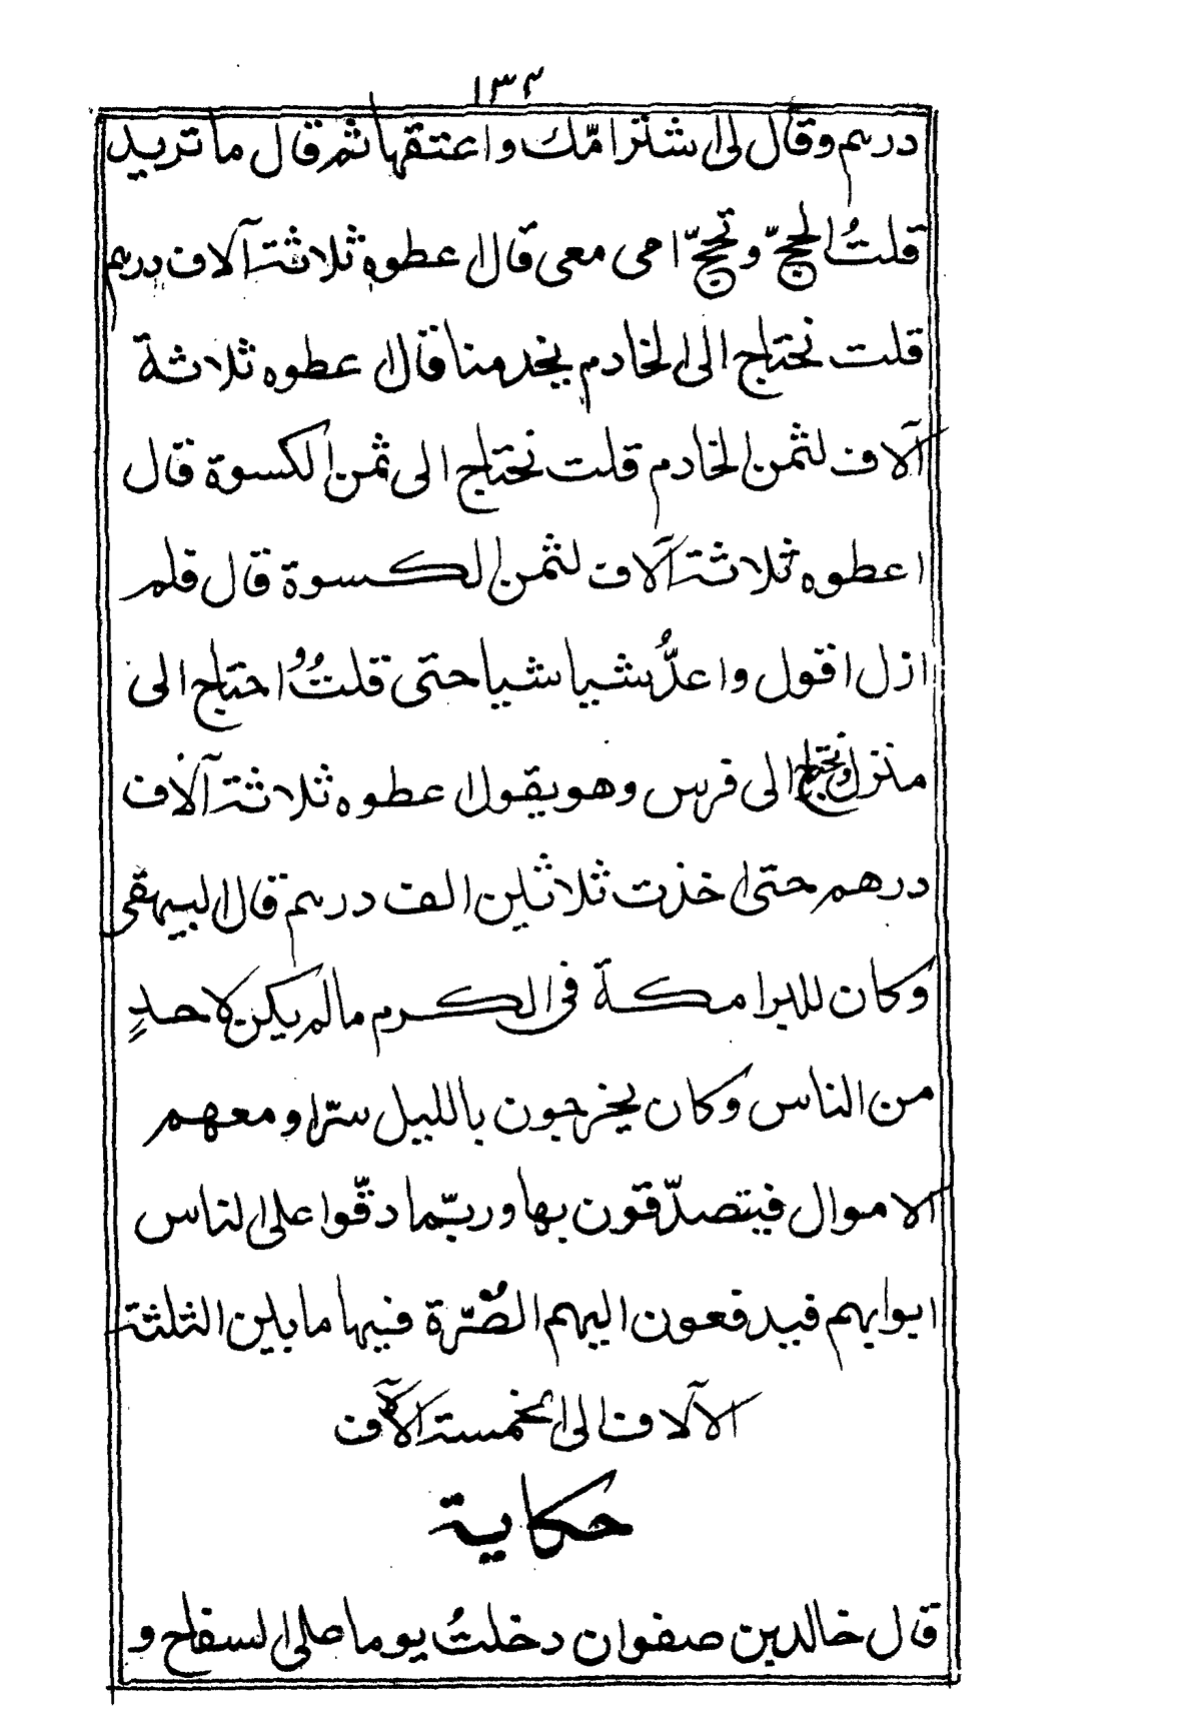 ١٣٢
درهم وقال لى اشتر امّك واعتقها ثم قال ما تريد
قلتُ الحجّ وتحجّ امى معى قال اعطوه ثلاثة آلاف درهم
قلت نحتاج الى الخادم يخدمنا قال اعطوه ثلاثة
آلاف لثمن الخادم قلت نحتاج الى ثمن الكسوة قال
اعطوه ثلاثة آلاف لثمن الكسوة قال فلم
ازل اقول واعدُّ شيا شيا حتى قلتُ احتاج الى
منزل ونحتاج الى فرس وهو يقول اعطوه ثلاثة آلاف
درهم حتى اخذت ثلاثين الف درهم قال البيهقى
وكان للبرامكة فى الكرم مالم يكن لاحدٍ
من الناس وكان يخرجون بالليل سرّا ومعهم
الاموال فيتصدّقون بها وربّما دقّوا على الناس
ابوابهم فيدفعون اليهم الصُّرّة فيها ما بين الثلثة
الآلاف الى الخمسة الآلاف
حكاية
قال خالد بن صفوان دخلتُ يوما على السفاح و